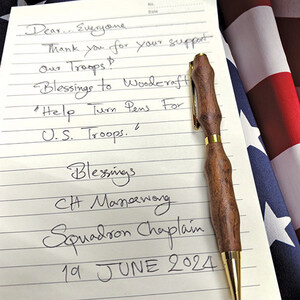 Dear... Everyone
Thank you for your support
our Troops!
Blessings to Woodcraft
"Help Turn Pens For
U.S. Troops."
Blessings
CH
Squadron Chaplain
19 JUNE 2024